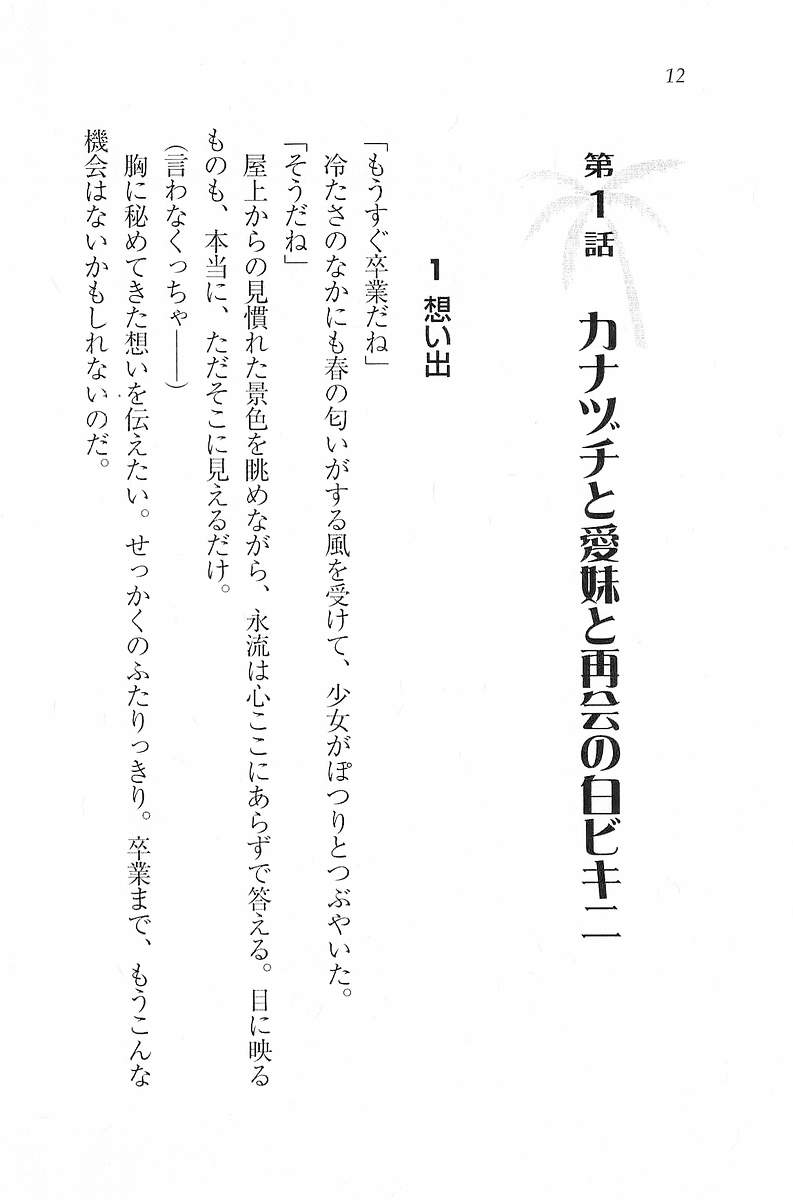 12
第1話 カナヅチと愛妹と再会の白ビキニ
1 想い出
「もうすぐ卒業だね」
冷たさのなかにも春の匂いがする風を受けて、少女がぽつりとつぶやいた。
「そうだね」
屋上からの見慣れた景色を眺めながら、永流は心ここにあらずで答える。目に映る
ものも、本当に、ただそこに見えるだけ。
(言わなくっちゃ――)
胸に秘めてきた想いを伝えたい。せっかくのふたりっきり。卒業まで、もうこんな
機会はないかもしれないのだ。